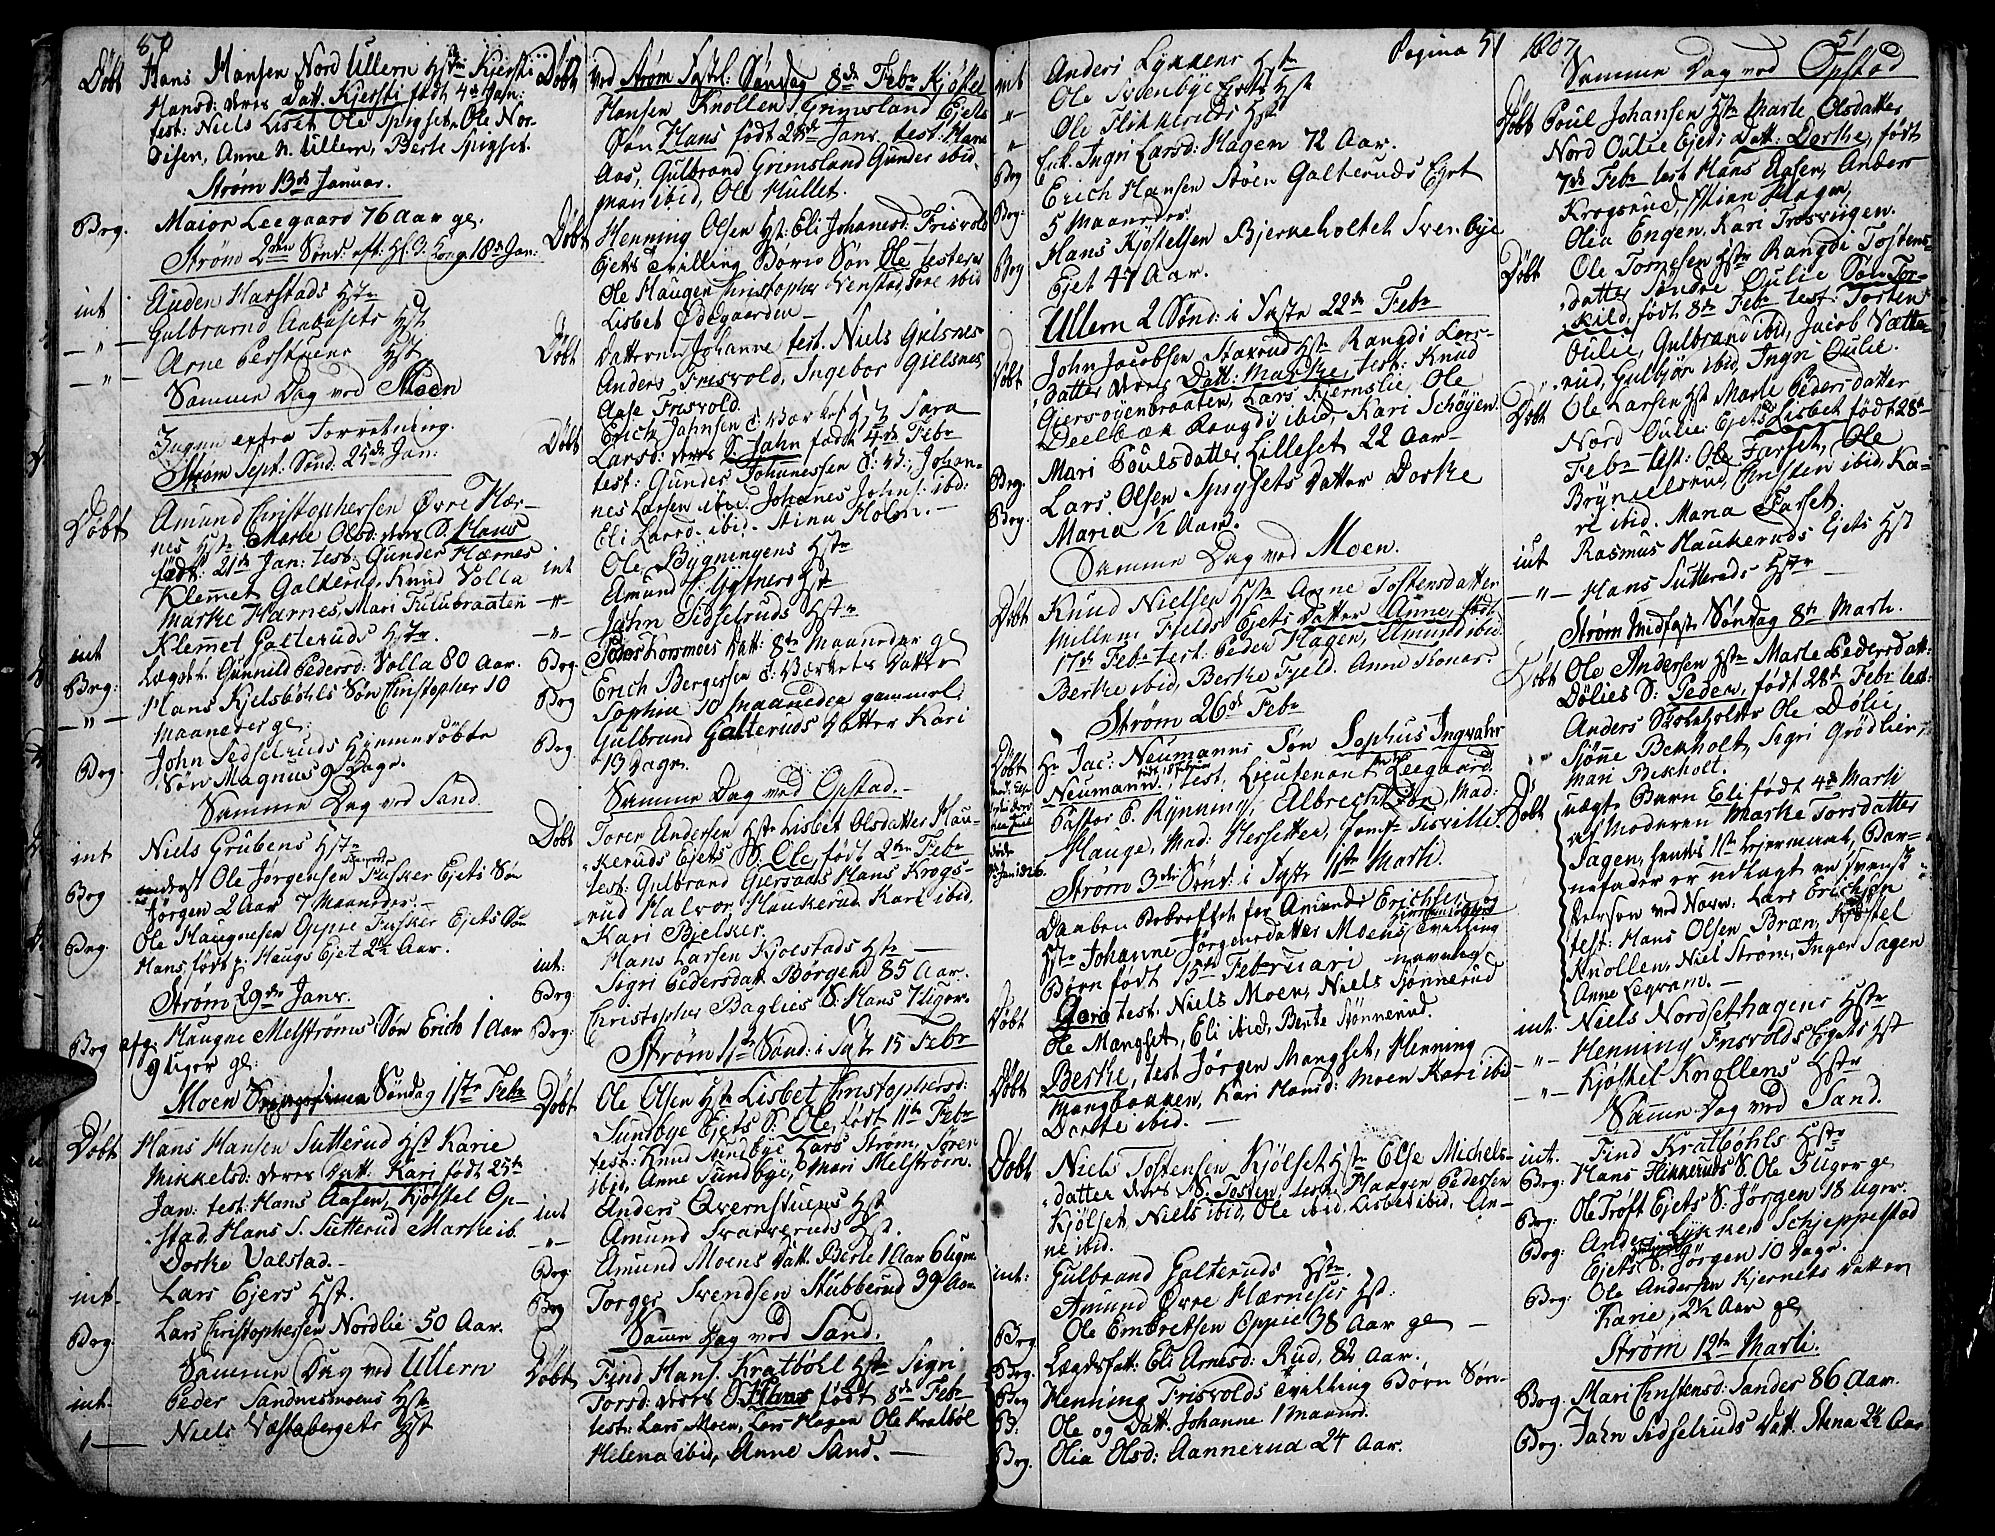 50
Døbt Hans Hansen Nord Ullern Hstr Kjersti
Hansd: deres Datt. Kjersti født 4de Jan:
test: Niels Liset Ole Spigset, Ole Nor-
Disen, Anne N. Ullern, Berte Spigset.
Strøm 13de Januar.
Beg. Maior Leegaard 76 Aar gl.
Strøm 2den Sønd: eft: H. 3. Kong. 18de Jan:
int Auden Harstads Hstr
—"— Gulbrand Aabasets Hst
—"— Arne Perstuens Hst
Samme Dag ved Moen
Ingen extra Forretning.
Strøm Sept: Sønd: 25de Jan:
Døbt Amund Christophersen Øvre Hær-
nes Hstr Marte Olsd: deres S. Hans
født: 21de Jan: test: Gunder Hærnes
Klemet Galterud, Knud Volla
Marthe Hærnes, Mari Fulubraaten
int Klemet Galteruds Hstr.
Beg: Lægdsl. Gunnild Pedersd: Volla 80 Aar.
—"— Hans Kjelsbøhls Søn Christopher 10
Maaneder gl.
Beg: John Sedselruds hjemmedøbte
Søn Magnus 9 Dage.
Samme Dag ved Sand
int Niels Grubens Hstr
Beg Ole Jørgensen Fusker Ejets Søn
Jørgen 2 Aar 7 Maaneder.
Beg Ole Haugnesen Oppe Fusker Ejets Søn
Hans født p: Haugs Ejet 2½ Aar.
Strøm 29de Janr.
Beg afg: Haugne Melstrøms Søn Erich 1 Aar
9 Uger gl:
Moen Søndag 1ste Febr
Døbt Hans Hansen Sutterud Hst Karie
Mikkelsd: deres Datt. Kari født 25de
Jan: test: Hans Aasen, Kjøstel Op-
stad, Hans S. Sutterud Marte ib.
Dorthe Valstad.
int. Lars Ejers Hst.
Beg Lars Christophersen Nordlie 50 Aar.
Samme Dag ved Ullern
int. Peder Sandnesmoens Hst
Niels Væstabergets Hst
Døbt Ved Strøm Fastel. Søndag 8de Febr Kjøstel
Hansen Knollen, Grimsland Ejets
Søn Hans født 28de Janr. test: Hans
Aas, Gulbrand Grimsland Gunder ibid.
Mari ibid, Ole Mullet.
Døbt Henning Olsen Hst: Eli Johansd: Frisvold
Ejets Tvilling Børn Søn Ole testes
Ole Haugen Christopher Venstad, Tore ibid
Lisbet Ødegaarden —
Døbt Datteren Johanne test. Niels Gulsnes
Anders Frisvold, Ingebor Gielsnes
Aase Frisvold.
Døbt Erich Jahnsen O: Værket Hst Sara
Larsd: deres S: Jahn født 4de Febr
test: Gunder Johanessen O: V:, Johan-
nes Larsen ibid: Johanes Johns: ibd:
Eli Larsd: ibid: Stina Holm. —
int Ole Bygningens Hstr
—"— Amund Gystners Hst
—"— John Sidselruds Hstr
Beg. Peders Korsmoes Datt: 8te Maaneder gl
Beg Erich Bergersen O: Værkets Datter
Sophia 10 Maaneder gammel.
Beg: Gulbrand Galteruds Datter Kari
13 Dage.
Samme Dag ved Opstad.
Døbt Toren Andersen Hstr Lisbet Olsdatter Hau-
keruds Ejets S: Ole, født 2den Febr
test: Gulbrand Giersaas Hans Krogs-
rud Halvor Haukerud Kari ibid.
Kari Bjelker.
int: Hans Larsen Kjolstads Hstr —
Beg: Sigri Pedersdatt Børgen 85 Aar.
Beg: Christopher Baglies S: Hans 7 Uger.
Strøm 1ste Sønd: i Faste 15 Febr
Døbt Ole Olsen Hst Lisbet Christophersd:
Sundbye Ejets S: Ole, født 11te Febr
test: Knud Sundbye Lars Strøm, Toren
ibid, Anne Sundbye, Mari Melstrøm.
int Anders Qvernstuens Hst
—"— Amund Svarveruds Hst.
Beg: Amund Moens Datt: Berte 1 Aar 6 Uger
Beg Torger Svendsen Stubberud 39 Aar
Samme Dag ved Sand.
Døbt Find Hans: Kratbøhl Hstr Sigri
Torsd: deres S. Hans født 8de Febr
test: Lars Moen, Lars Hagen Ole Kratbøl
Helena ibid, Anne Sand. —
Pagina 51
int Anders Lykkens Hst
" Ole Svenbye Ejets Hst
" Ole Flikkeruds Hst
Beg Enk. Ingri Larsd: Hagen 72 Aar.
Beg: Erich Hansen Støen Galteruds Ejet
5 Maaneder.
Beg Hans Kjøstelsen Bjerkeholtet Svenbye
Ejet 47 Aar.
Ullern 2 Sønd: i Faste 22de Febr
Døbt John Jacobsen Staxrud Hst Rangdi Lars-
datter deres Datt: Marthe, test: Knud
Giersøyenbraaten, Lars Kjernslie Ole
Deelbæk Rangdi ibid, Kari Schøyen
Beg: Mari Poulsdatter Lilleset 22 Aar —
Beg. Lars Olsen Spigsets Datter Dorthe
Maria ½ Aar.
Samme Dag ved Moen.
Døbt Knud Nielsen Hstr Anne Tostensdatter
Millem Fjelds Ejets Datter Anne, født
17de Febr test. Peder Hagen, Amund ibid
Berthe ibid, Berthe Fjeld. Anne Skones.
Strøm 26de Febr
Døbt Hr Jac: Neumanns Søn Sophus Ingvahr
Neumann, test. Lieutenant Leegaard
Pastor E. Rynning, Albrecht Mad:
Hauge, Mad: Hersetten, Jomfr Tisville.
Strøm 3die Sønd: i Faste 1ste Martii.
Daaben Bekreftet for Amunds Erichsen
Hstr Johanne Jørgensdatter Moens Tvilling
Børn født 15de Februari navnlig
Døbt Gord test. Niels Moen, Niels Sønnerud
Ole Mangset, Eli ibid, Berte Sønnerud.
Døbt Berthe, test Jørgen Mangset, Henning
Mangbakken, Kari Hansd: Moen Kari ibid
Dorte ibid. —
Døbt Niels Tostensen Kjølset Hstr Else Michels-
datter deres S. Tosten, test: Haagen Pedersen
Kjølset, Niels ibid, Ole ibid, Lisbet ibid, An-
ne ibid.
int: Gulbrand Galteruds Hstr.
Amund Øvre Hærneses Hst:
Beg Ole Embretsen Oppie 38 Aar gl —
Beg. Lægdsfatt: Eli Arnesd: Rud, 82 Aar.
Beg Henning Frisvolds Tvilling Børn Søn
B: Ole og Datt. Johanne 1 Maaned.
Beg. Olia Olsd: Aannerud 24 Aar.
1807 51
Samme Dag ved Opstad
Døbt Poul Johansen Hst Marte Olsdatter
Nord Oulie Ejets Datt: Dorthe, født
7de Febr test Hans Aasen, Anders
Krogsrud, Stian Hagen,
Olia Engen, Kari Trosviigen.
Døbt Ole Torresen Hstr Rangdi Tostens-
datter Søndre Oulie Søn Tor-
kild, født 8de Febr test: Tosten
Oulie, Gulbrand ibid, Jacob Vætte-
rud, Gulbjør ibid, Ingri Oulie.
Døbt Ole Larsen Hst Marte Pedersdatter
Nord Oulie Ejets Lisbet født 28de
Febr test: Ole Farset, Ole
Brynielsen, Christen ibid, Ka-
ri ibid. Maria Farset.
int Rasmus Haukeruds Ejets Hst
—"— Hans Sutteruds Hstr —
Strøm Midfaste Søndag 8de Marti.
Døbt Ole Andersen Hstr Marte Pedersdatt:
Dølies S: Peder, født 28de Febr test:
Anders Skoleholder Ole Dølie,
Sjønne Bekholt, Sigri Grødlien,
Mari Bekholt.
Døbt Uægte Barn Eli født 4de Marti
af Moderen Marthe Torsdatter
Sagen, hendes 1ste Leiermaal, Bar-
nefader er udlagt en svensk
Person ved Navn Lars Erichsøn
test: Hans Olsen Bræn, Kjøstel
Knollen, Niel Strøm, Inger Sagen
Anne Legram. —
int. Niels Nordsethagens Hstr
—"— Henning Frisvolds Ejets Hst
—"— Kjøstel Knollens Hstr
Samme Dag ved Sand.
int. Find Kratbøhls Hstr
Beg: Hans Flikkeruds S. Ole 5 Uger gl
Beg: Ole Trøft Ejets S: Jørgen 18 Uger.
Beg: Anders Lykken Schjeppestad
Ejets S. Jørgen 10 Dage.
Beg: Ole Andersen Kjernets Datter
Karie, 2½ Aar gl
Strøm 12te Marti.
Beg. Mari Christensd: Sander 86 Aar.
Beg. Jahn Sidselruds Datt. Stena 2½ Aar